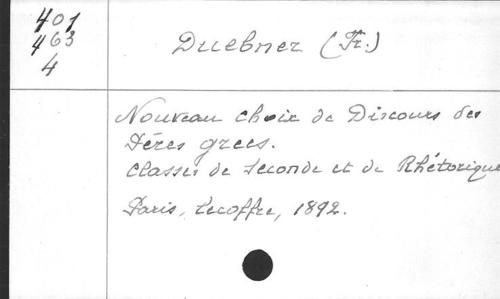 401
463
4
Duebner (Fr.)
Nouveau choix de Discours des
Pères grecs.
Classes de Seconde et de Rhétorique
Paris, Lecoffre, 1892.